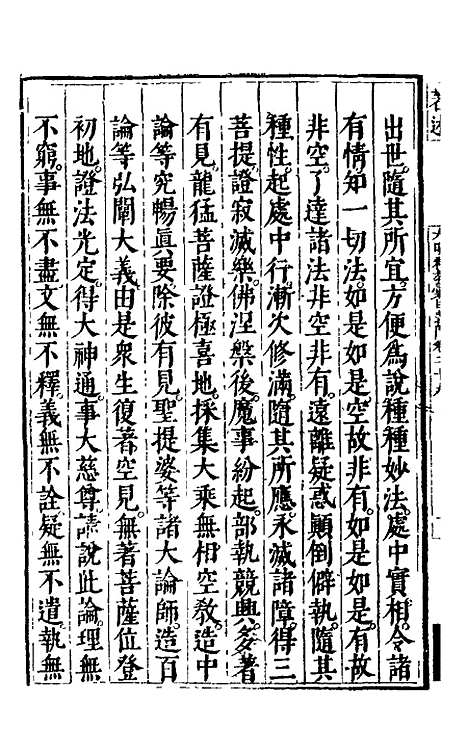 出世。隨其所宜。方便爲說種種妙法。處中實相。令諸
有情知一切法。如是如是。空故非有。如是如是。有故
非空。了達諸法非空非有。遠離疑惑顛倒僻執。隨其
種性。起處中行。漸次修滿。隨其所應。永滅諸障。得三
菩提。證寂滅樂。佛涅槃後。魔事紛起。部執競興。多著
有見。龍猛菩薩證極喜地。採集大乘無相空教。造中
論等究暢眞要。除彼有見。聖提婆等諸大論師造百
論等弘闡大義。由是衆生復著空見。無著菩薩位登
初地。證法光定。得大神通。事大慈尊請說此論。理無
不窮。事無不盡。文無不釋。義無不詮。疑無不遣。執無